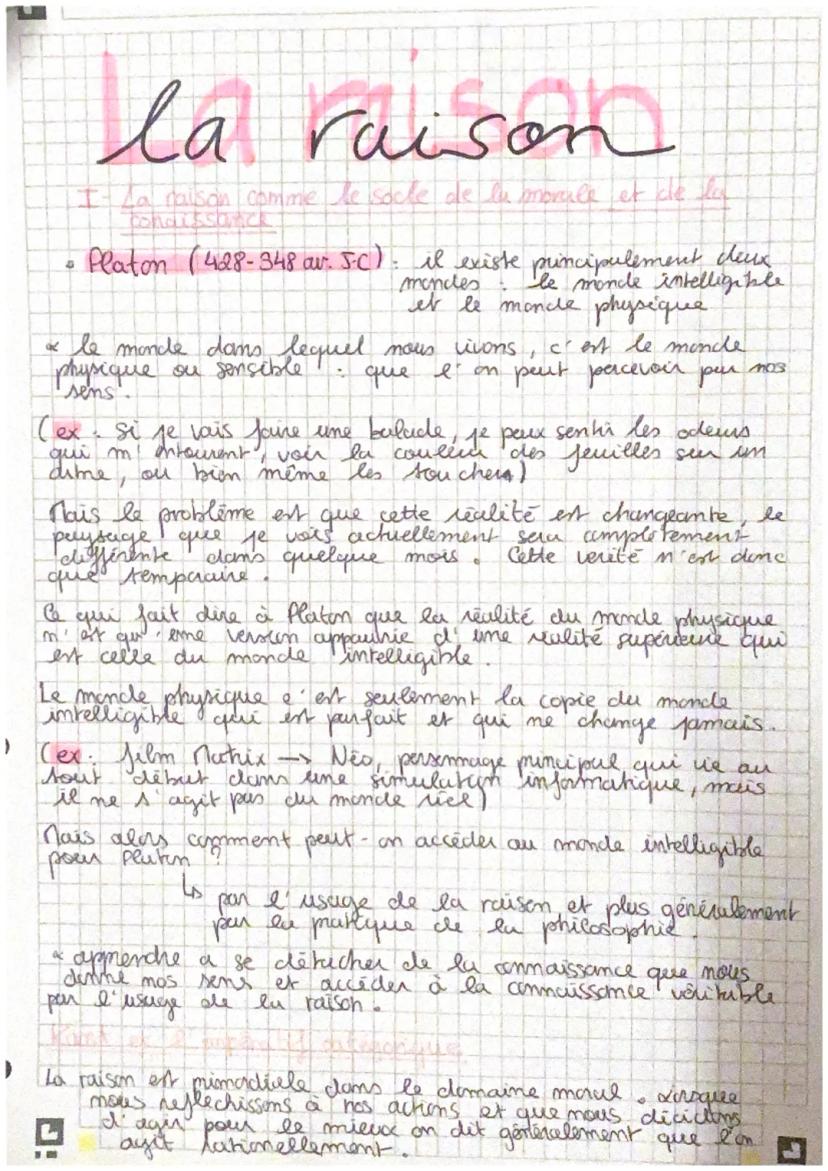 La raison
la raison
I - La raison comme le socle de la morale et de la
connaissance
• Platon (428-348 av. J-C) : il existe principalement deux
mondes : le monde intelligible
et le monde physique
∝ le monde dans lequel nous vivons, c'est le monde
physique ou sensible : que l'on peut percevoir par nos
sens.
(ex : si je vais faire une balade, je peux sentir les odeurs
qui m'entourent, voir la couleur des feuilles sur un
arbre, ou bien même les toucher)
Mais le problème est que cette réalité est changeante, le
paysage que je vois actuellement sera complètement
différente dans quelque mois. Cette vérité n'est donc
que temporaire.
Ce qui fait dire à Platon que la réalité du monde physique
n'est qu'une version appauvrie d'une réalité supérieure qui
est celle du monde intelligible.
Le monde physique c'est seulement la copie du monde
intelligible qui est parfait et qui ne change jamais.
(ex : film Matrix → Néo, personnage principal qui vie au
tout début dans une simulation informatique, mais
il ne s'agit pas du monde réel)
Mais alors comment peut-on accéder au monde intelligible
pour Platon ?
↳ par l'usage de la raison et plus généralement
par la pratique de la philosophie.
∝ apprendre a se détacher de la connaissance que nous
donne nos sens et accéder à la connaissance véritable
par l'usage de la raison.
Kant et l'impératif catégorique
La raison est primordiale dans le domaine moral. Lorsque
nous reflechissons à nos actions et que nous décidons
d'agir pour le mieux on dit généralement que l'on
agit rationellement.